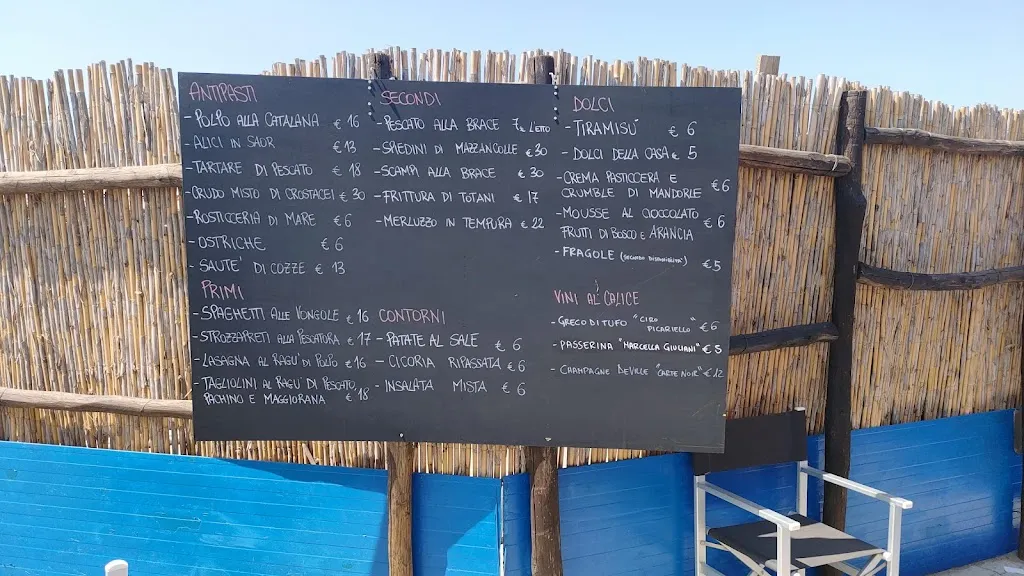 ANTIPASTI
- POLPO ALLA CATALANA € 16
- ALICI IN SAOR € 13
- TARTARE DI PESCATO € 18
- CRUDO MISTO DI CROSTACEI € 30
- ROSTICCERIA DI MARE € 6
- OSTRICHE € 6
- SAUTE' DI COZZE € 13
PRIMI
- SPAGHETTI ALLE VONGOLE € 16
- STROZZAPRETI ALLA PESCATORA € 17
- LASAGNA AL RAGU' DI POLPO € 16
- TAGLIOLINI AL RAGU' DI PESCATO,
PACHINO E MAGGIORANA € 18
SECONDI
- PESCATO ALLA BRACE 7€ L'ETTO
- SPIEDINI DI MAZZANCOLLE € 30
- SCAMPI ALLA BRACE € 30
- FRITTURA DI TOTANI € 17
- MERLUZZO IN TEMPURA € 22
CONTORNI
- PATATE AL SALE € 6
- CICORIA RIPASSATA € 6
- INSALATA MISTA € 6
DOLCI
- TIRAMISU' € 6
- DOLCI DELLA CASA € 5
- CREMA PASTICCERA E
CRUMBLE DI MANDORLE € 6
- MOUSSE AL CIOCCOLATO
FRUTTI DI BOSCO E ARANCIA € 6
- FRAGOLE (SECONDO DISPONIBILITA') € 5
VINI AL CALICE
- GRECO DI TUFO "CIRO
PICARIELLO" € 6
- PASSERINA "MARCELLA GIULIANI" € 5
- CHAMPAGNE DEVILLE "CARTE NOIR" € 12